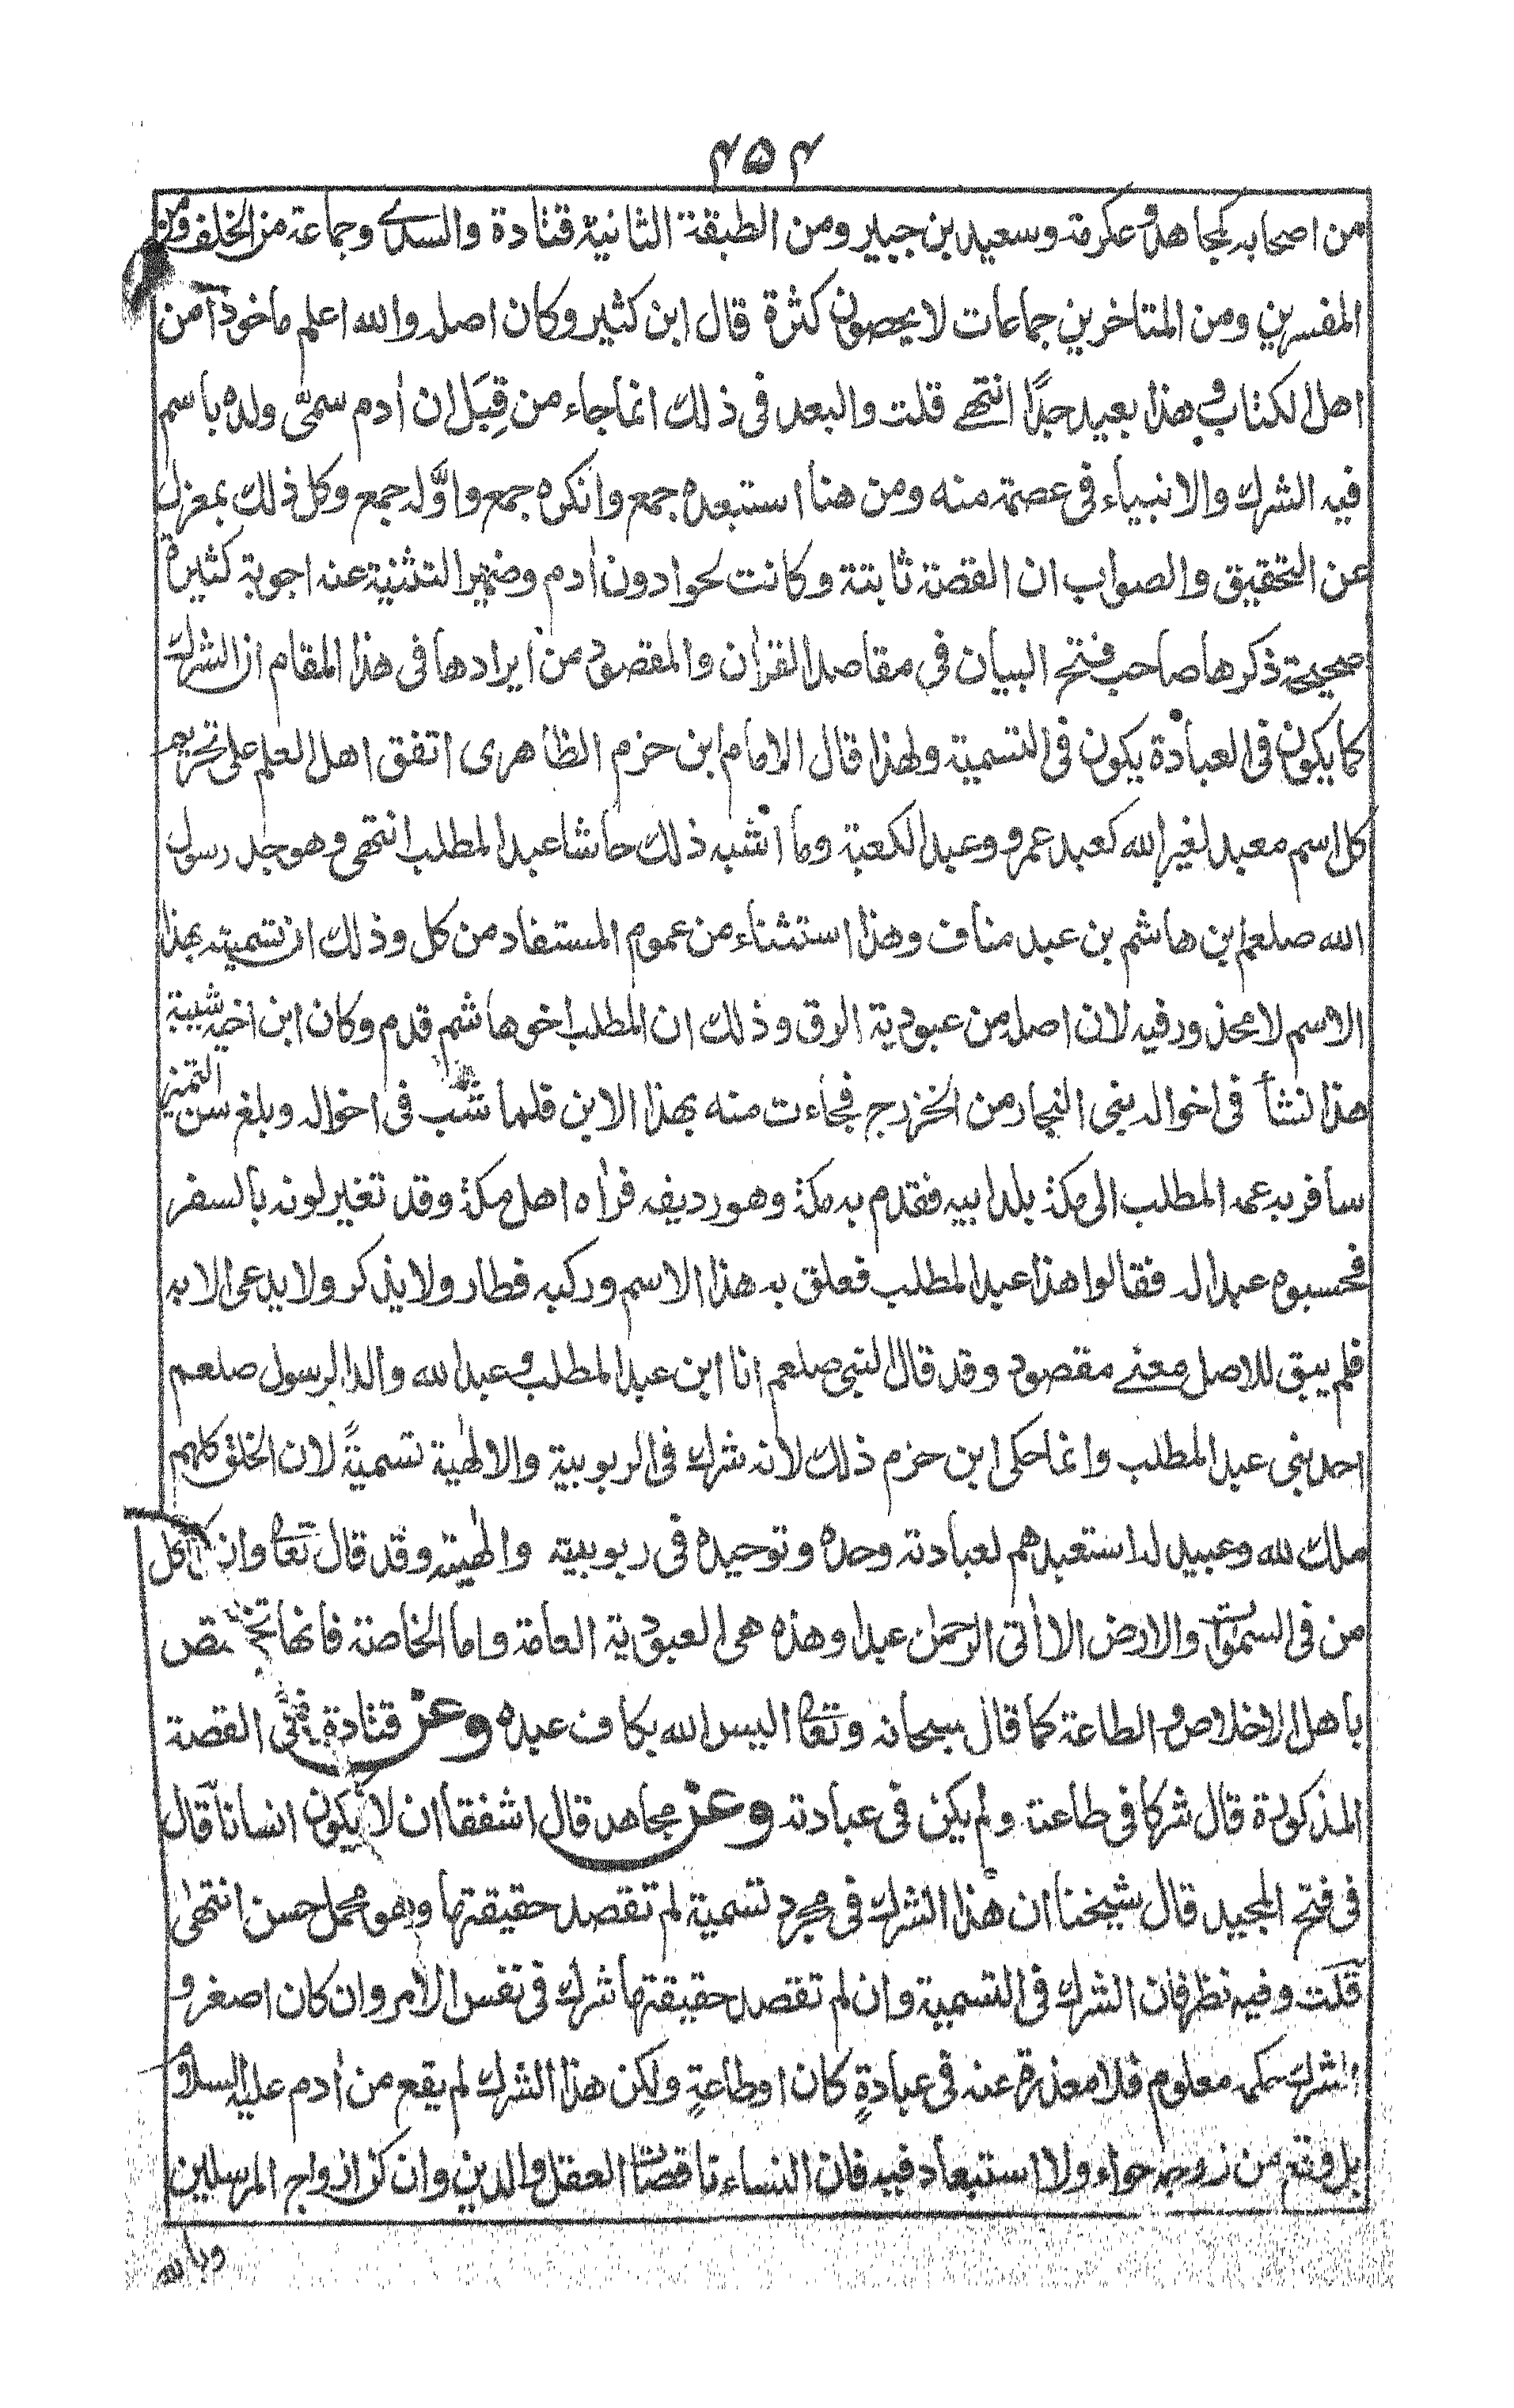 ۴۵۴
من اصحابه كمجاهد وعكرمة وسعيد بن جبير ومن الطبقة الثانية قتادة والسدے وجماعة من الخلف ومن
المفسرين ومن المتاخرين جماعات لا يحصون كثرة قال ابن كثير وكان اصله والله اعلم ماخوذ آ من
اهل الكتاب وهذا بعيد جدًّا انتهے قلت والبعد فى ذلك انما جاء من قِبَل ان اٰدم سمّى ولده باسم
فيه الشرك والانبياء فى عصمة منه ومن هنا استبعده جمع وانكره جمع واوّله جمع وكل ذلك بمعزل
عن التحقيق والصواب ان القصة ثابتة وكانت لحوا دون اٰدم وضمير التثنية عنه اجوبة كثيرة
صحيحة ذكرها صاحب فتح البيان فى مقاصد القراٰن والمقصود من ايرادها فى هذا المقام ان الشرك
كما يكون فى العبادة يكون فى التسمية ولهذا قال الامام ابن حزم الظاهرى اتفق اهل العلم على تحريم
كل اسم معبد لغير الله كعبد عمرو وعبد الكعبة وما اشبه ذلك حاشا عبد المطلب انتهى وهو جد رسول
الله صلعم ابن هاشم بن عبد مناف وهذا استثناء من عموم المستفاد من كل وذلك ان تسميته بهذا
الاسم لا محذور فيه لان اصله من عبودية الرق وذلك ان المطلب اخو هاشم قدم وكان ابن اخيه شيبة
هذا نشأ فى اخواله بنى النجار من الخزرج فجاءت منه بهذا الابن فلما شب فى اخواله وبلغ سن التميز
سافر به عمه المطلب الى مكة بلد ابيه فقدم به مكة وهو رديفه فراٰه اهل مكة وقد تغير لونه بالسفر
فحسبوه عبدا له فقالوا هذا عبد المطلب فعلق به هذا الاسم وركبه فطار ولا يذكر ولا يدعى الا به
فلم يبق للاصل معنے مقصود وقد قال النبى صلعم انا ابن عبد المطلب وعبد الله والد الرسول صلعم
احد بنى عبد المطلب وانما حكى ابن حزم ذلك لانه شرك فى الربوبية والالٰهية تسميةً لان الخلق كلهم
ملك لله وعبيد له استعبدهم لعبادته وحده وتوحيده فى ربوبيته والٰهيته وقد قال تعا وان كل
من فى السمٰوٰت والارض الا اٰتى الرحمٰن عبدا وهذه هى العبودية العامة واما الخاصة فانها تختص
باهل الاخلاص والطاعة كما قال سبحانه وتعا اليس الله بكاف عبده وعن قتادة فى القصة
المذكورة قال شركا فى طاعته ولم يكن فى عبادته وعن مجاهد قال اشفقا ان لا يكون انسانا قال
فى فتح المجيد قال شيخنا ان هٰذا الشرك فى مجرد تسمية لم تقصد حقيقتها وهو محمل حسن انتهٰى
قلت وفيه نظر فان الشرك فى التسمية وان لم تقصد حقيقتها شرك فى نفس الامر وان كان اصغر و
الشرك حكمه معلوم فلا معذرة عنه فى عبادةٍ كان او طاعةٍ ولكن هذا الشرك لم يقع من اٰدم عليه السلام
بل وقع من زوجه حواء ولا استبعاد فيه فان النساء ناقصات العقل والدين وان كن ازواج المرسلين
وبالله